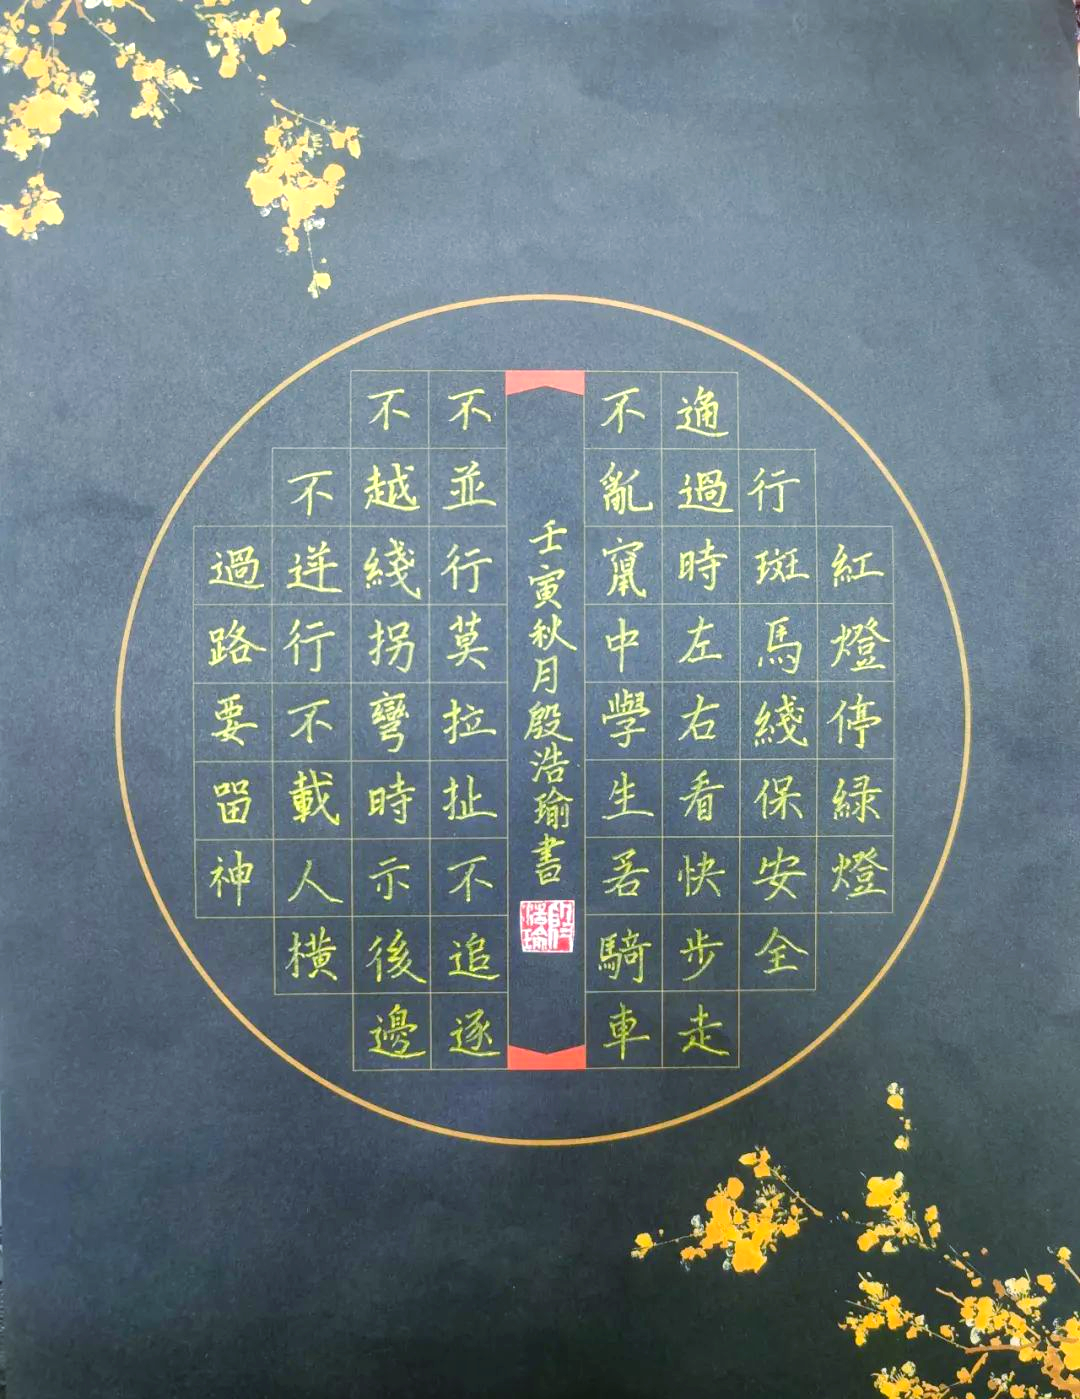 紅燈停綠燈
行斑馬綫保安全
通過時左右看快步走
不亂竄中學生若騎車
壬寅秋月殷浩瑜書
殷浩瑜
不並行莫拉扯不追逐
不越綫拐彎時示後邊
不逆行不載人橫
過路要留神